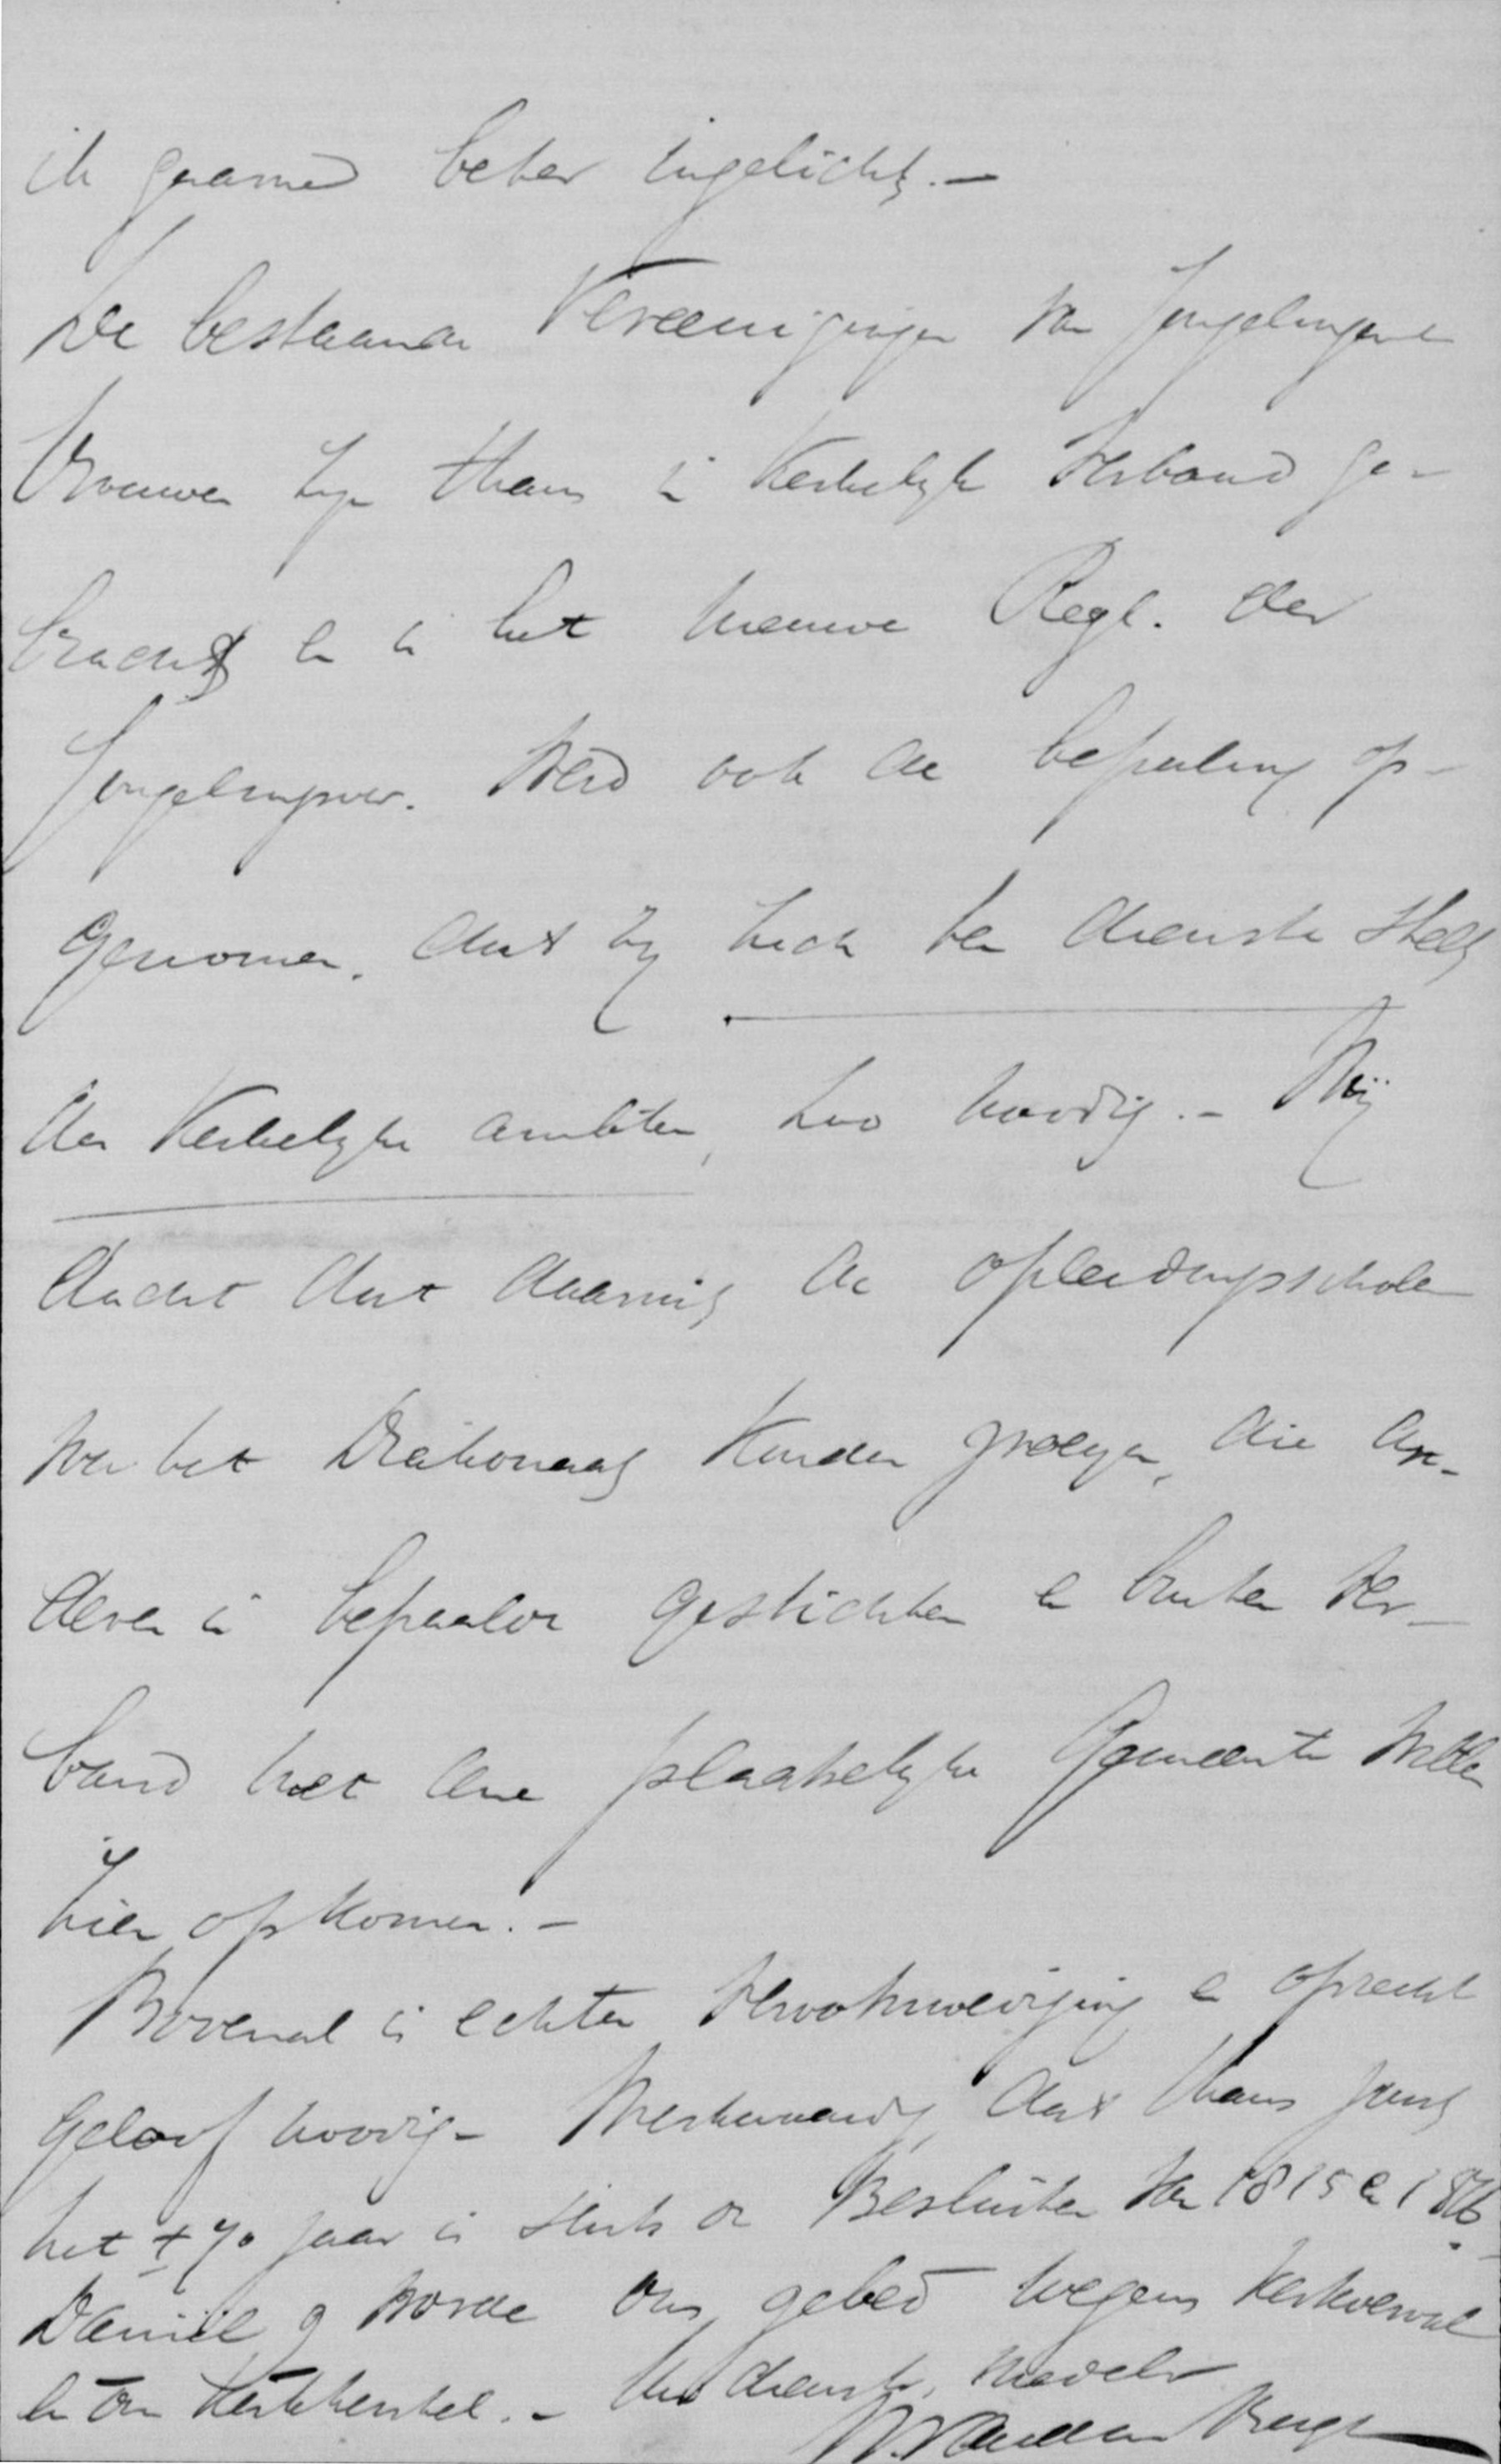 ik gaarne beter ingelicht. —
De bestaande Vereenigingen van Jongelingen &
Vrouwen zijn thans in Kerkelijk Verband ge-
bracht en in het nieuwe Regl. der
Jongelingsver. werd ook de bepaling op-
genomen, dat zij zich ten dienste stelt
der Kerkelijke ambten, zoo noodig. — Mij
dacht dat daaruit de opleidingsscholen
voor het Diakonaat konden groeijen, die an-
deren in bepaalde gestichten en buiten ver-
band met eene plaatselijke Gemeente willen
zien opkomen. —
Bovenal is echter verootmoediging en oprecht
geloof noodig — Merkwaardig dat thans juist
het ± 70 jaar is sinds de Besluiten van 1815 en 1816.
Daniël 9 worde ons gebed wegens Kerkverval
en om Kerkherstel. — Uw dienstv. medebr
W. van den Bergh